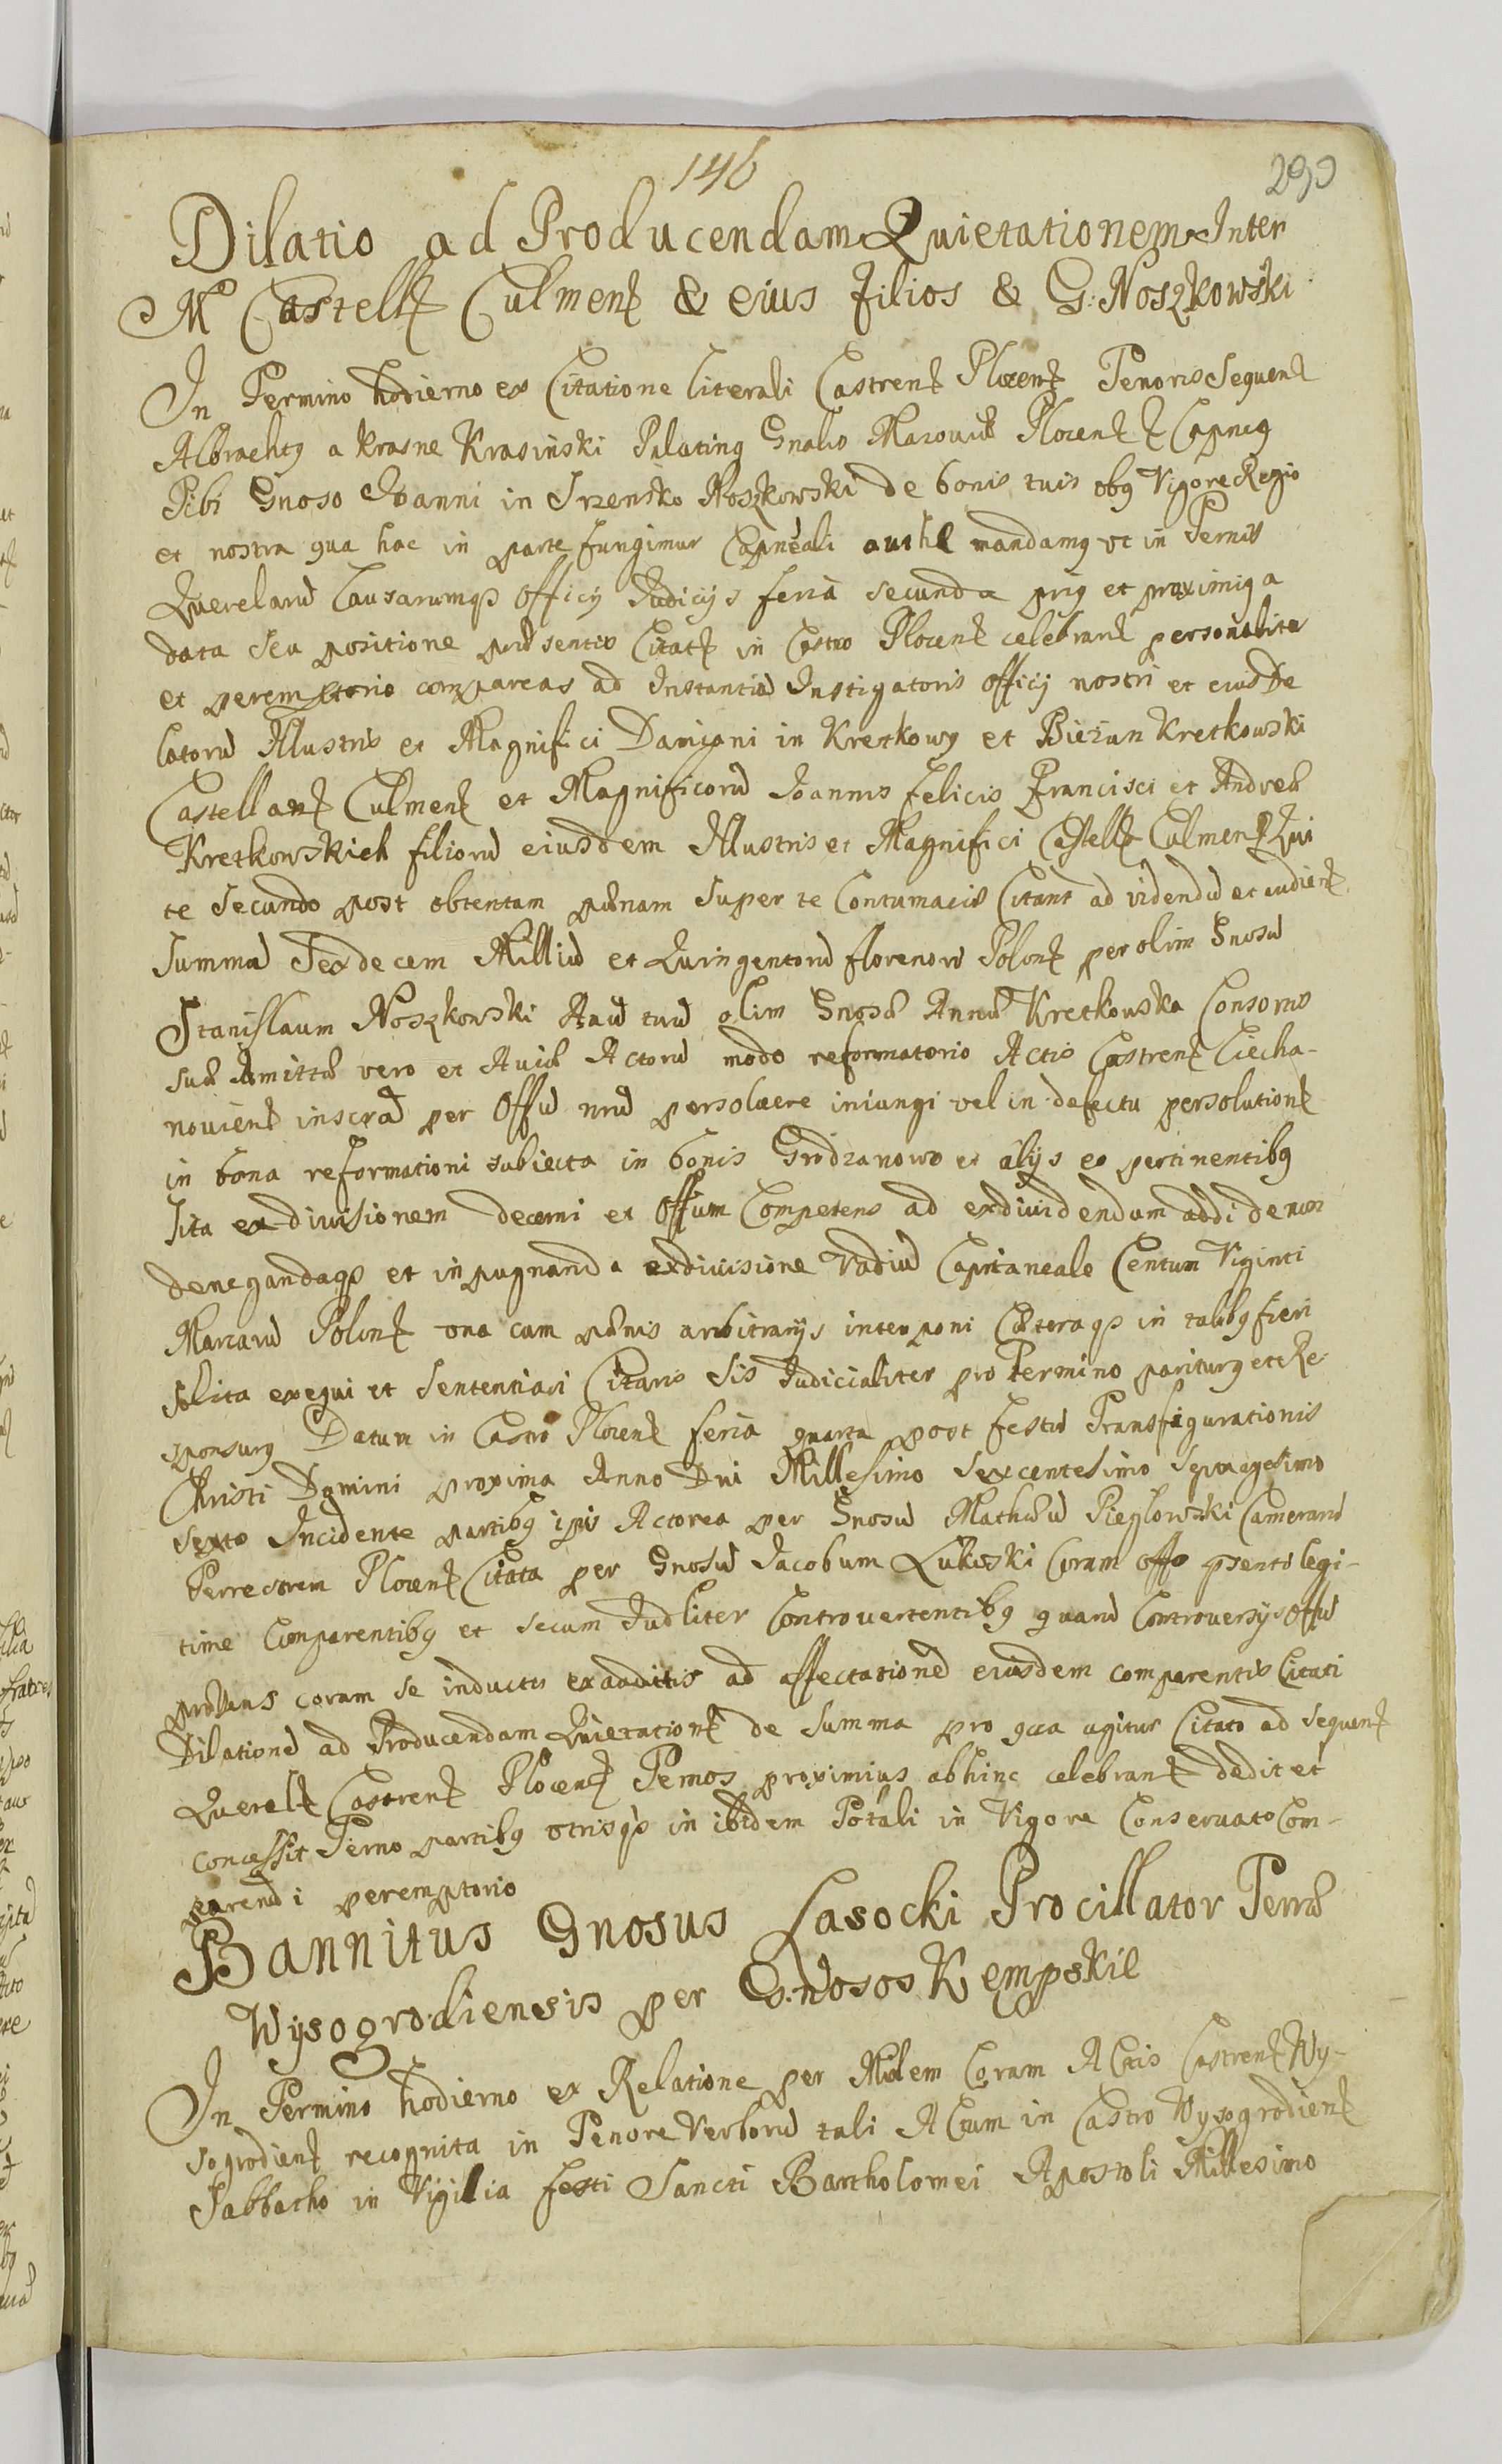 146
290
Dilatio ad Producendam Quietationem Inter
M Castell Culmen & eius filios & G: Noszkowski
In Termino hodierno ex Citatione literali Castren Plocen Tenoris Sequen
Albracht9 a Krasne Krasinski Palatin9 Gnalis Mazouiæ Plocen Capne9
Tibi Gnoso Joanni in Srzensko Noszkowski de bonis tuis ob9 Vigore Regio
et nostra qua hac in parte fungimur Capneali authe mandam9 vt in Ternis
Querelarū Causarumq3 Officij Judicijs feria secunda pri9 et proximi9 a
data seu positione præsentis Citat in Castro Plocen celebran personaliter
et peremptorie compareas ad Instantiā Instigatoris officij nostri et eius De
latorū Illustris et Magnifici Damiani in Kretkowy et Biezun Kretkowski
Castellan Culmen et Magnificorū Joannis Felicis Francisci et Andreæ
Kretkowskich filiorū eiusdem Illustris et Magnifici Castell Culmen Qui
te Secundo post obtentam pænam super te Contumaciæ Citant ad videndū et audien
Summā Sexdecem Milliū et Quingentorū florenorū Polon per olim Gnosū
Stanislaum Noszkowski Auū tuū olim Gnosæ Annæ Kretkowska Consortis
suæ Amittæ vero et Auiæ Actorū modo reformatorio Actis Castren Ciecha-
nouien inscrā per Offū nrū persoluere iniungi vel in defectu persolution
in bona reformationi subiecta in bonis Grodzanowo et alijs eo pertinentib9
sita exdiuisionem decerni et Offium Competens ad exdiuidendum addi
denegandaq3 et inpugnanda exdiuisione Vadiū Capitaneale Centum Viginti
Marcarū Polon vna cum pænis arbitrarijs interponi Cæteraq3 in talib9 fieri
solita exequi et Sententiari Citaris Sis Judicialiter pro Termino paritur9 et Re-
sponsur9 Datum in Castro Plocen feria quarta post festū Transfigurationis
Christi Domini proxima Anno Dni Millesimo Sexcentesimo Septuagesimo
Sexto Incidente partib9 ipis Actorea per Gnosū Mathæū Pieglowski Camerarū
Terrestrem Plocen Citata per Gnosū Jacobum Lukoski Coram offo psenti legi-
time Comparentib9 et secum Judliter Controuertentib9 quarū Controuersijs Offū
præsens coram se inductis exauditis ad affectationē eiusdem comparentis Citati
Dilationē ad Producendam Quietation de Summa pro qua agitur Citato ad sequen
Querel Castren Plocen Temos proximius abhinc celebran dedit et
concessit Terno partib9 vtrisq3 in ibidem Potali in Vigore Conseruato Com-
parendi peremptorio
Bannitus Gnosus Lasocki Procillator Terræ
Wysogrodiensis per Gnosos Kempskie
In Termino hodierno ex Relatione per Milem Coram Actis Castren Wy-
sogrodien recognita in Tenore Verborū tali Actum in Castro Wysogrodien
Sabbatho in Vigilia festi Sancti Bartholomei Apostoli Millesimo